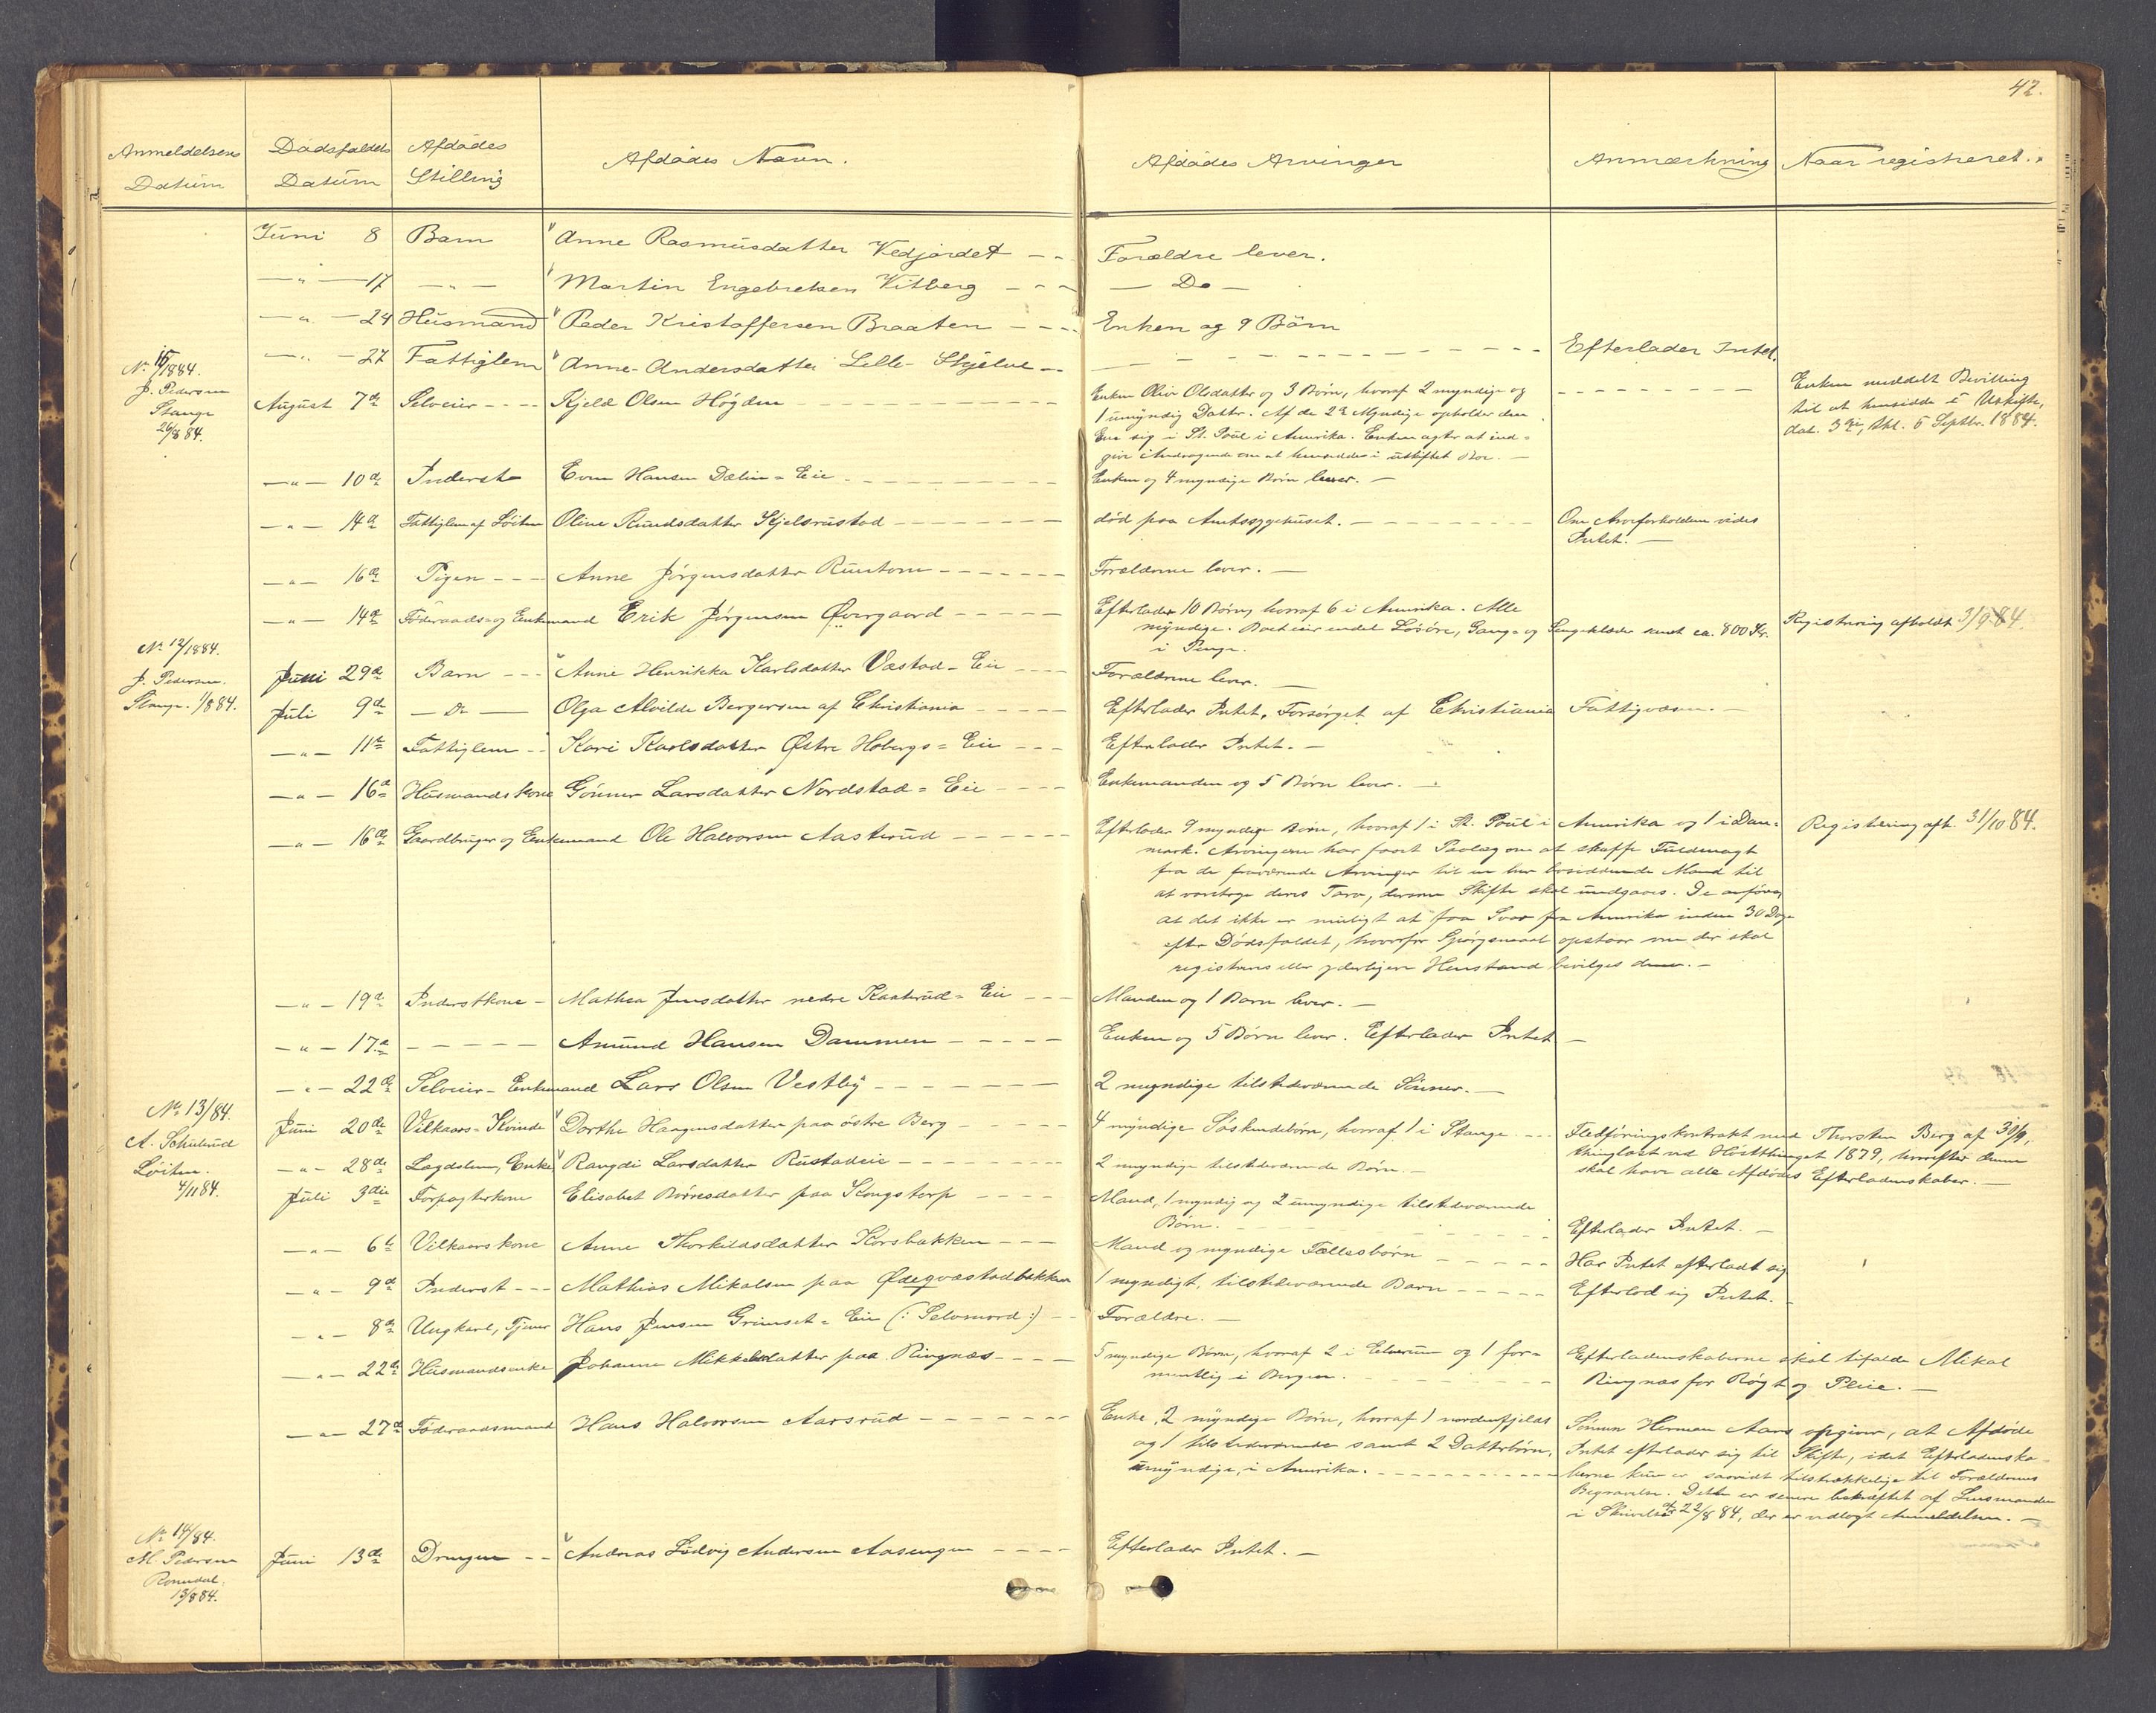 42.
Anmeldelsens Datum
Dødsfaldets Datum
Afdødes Stilling
Afdødes Navn.
Afdødes Arvinger
Anmærkning
Naar registreret.
Juni 8 Barn Anne Rasmusdatter Vedjordet - - Forældre lever.
— " — 17 — " — Martin Engebretsen Vitberg - - - — Do —
— " — 24 Husmand Peder Kristoffersen Braaten - - - Enken og 9 Börn
— " — 27 Fattiglem Anne Andersdatter Lille-Skjelve - - Efterlader Intet.
1884.
J. Pedersen
Stange
26/8 84.
August 7de Selveier - - - Kjeld Olsen Högden Enken Oliv Olsdatter og 3 Börn, hvoraf 2 myndige og - - - Enken meddelt Bevilling
1 umyndig Datter. Af de 2de Myndige opholder den til at hensidde i Uskifte,
Ene sig i St. Poul i Amerika. Enken agter at ind- dat. 3die, thl. 5 Septbr. 1884.
give Andragende om at hensidde i uskiftet Bo. —
— " — 10de Inderst Even Hansen Dælin-Eie - - - Enken og 4 myndige Börn lever. —
— " — 14de Fattiglem af Löiten Oline Knudsdatter Kjelsrustad - - - död paa Amtssygehuset. - - - Om Arveforholdene vides
Intet. —
— " — 16de Pigen - - - Anne Jörgensdatter - - - Forældrene lever. —
— " — 14de Föderaads- og Enkemand Erik Jörgensen Övergaard - - - Efterlader 10 Börn, hvoraf 6 i Amerika. Alle Registrering afholdt 3/9 84.
myndige. Boet eier endel Lösöre, Gang- og Sengeklæder samt ca. 800 Kr.
i Penge.
No 12/1884.
J. Pedersen.
Stange. 1/8 84.
Juni 29de Barn - - - Anne Henrikka Karlsdatter Væstad-Eie - - - Forældrene lever. —
Juli 9de — Do — Olga Alvilde Bergersen af Christiania - - - Efterlader Intet. Forsörget af Christiania Fattigvæsen. —
— " — 11te Fattiglem - - Kari Karlsdatter Østre Hobergs-Eie - - - Efterlader Intet. —
— " — 16de Husmandskone Gönner Larsdatter Nordstad-Eie - - - Enkemanden og 5 Börn lever. —
— " — 16de Gaardbruger og Enkemand Ole Halvorsen Aasterud - - - Efterlader 9 myndige Börn, hvoraf 1 i St. Poul i Amerika og 1 i Dan- Registrering afh. 31/10 84.
mark. Arvingerne har faaet Paalæg om at skaffe Fuldmagt
fra de fraværende Arvinger til en her bosiddende Mand til
at varetage deres Tarv, dersom Skifte skal undgaaes. De anförer,
at det ikke er muligt at faa Svar fra Amerika inden 30 Dage
efter Dödsfaldet, hvorfor Spörgsmaal opstaar om der skal
registreres eller yderligere Henstand bevilges dem. —
— " — 19de Inderstkone - Mathea Jensdatter nedre Kaaterud-Eie - - - Manden og 1 Barn lever. —
— " — 17de - - - Amund Hansen Dammen - - - Enken og 5 Börn lever. Efterlader Intet —
— " — 22de Selveier-Enkemand Lars Olsen Vestby - - - 2 myndige tilstedeværende Sönner. —
No 13/84.
A. Schulerud
Löiten.
4/11 84.
Juni 20de Vilkaars-Kvinde Dorthe Haagensdatter paa östre Berg - - - 4 myndige Söskendebörn, hvoraf 1 i Stange. - - - Fledföringskontrakt med Thorsten Berg af
thinglæst ved Höstthinget 1879, hvorefter denne
skal have alle Afdödes Efterladenskaber. —
— " — 28de Lægdslem, Enke Rangdi Larsdatter Rustadeie - - - 2 myndige tilstedeværende Börn. —
Juli 3die Forpagterkone Elisabet Börresdatter paa Kongstorp - - - Mand, 1 myndig og 2 umyndige tilstedeværende
Börn. - - - Efterlader Intet. —
— " — 6te Vilkaarskone Anne Thorkildsdatter Korsbakken - - - Mand og myndige Fællesbörn - - - Har Intet efterladt sig
— " — 9de Inderst - - - Mathias Mikalsen paa Ødegvæstadbakken 1 myndigt, tilstedeværende Barn - - - Efterlod sig Intet. —
— " — 8de Ungkarl, Tjener Hans Jensen Grimset-Eie (: Selvmord :) - - Forældre. —
— " — 22de Husmandsenke Johanne Mikkelsdatter paa Ringnæs - - - 5 myndige Börn, hvoraf 2 i Elverum og 1 for- Efterladenskaberne skal tilfalde Mikal
mentlig i Bergen. - - - Ringnæs for Rögt og Pleie. —
— " — 27de Föderaadsmand Hans Halvorsen Aarsrud - - - Enke, 2 myndige Börn, hvoraf 1 nordenfjelds Sönnen Herman Aars opgiver, at Afdöde
og 1 tilstedeværende samt 2 Datterbörn, Intet efterlader sig til Skifte, idet Efterladenska-
umyndige, i Amerika. - - - berne kun er saavidt tilstrækkelige til Forældrenes
Begravelse. Dette er senere bekræftet af Lensmanden
i Skrivelse af 22/8 84, der er vedlagt Anmeldelsen. —
No 14/84.
M. Pedersen
Romedal.
13/8 84.
Juni 13de Drengen - - Andreas Ludvig Andersen Aasengen - - - Efterlader Intet. —